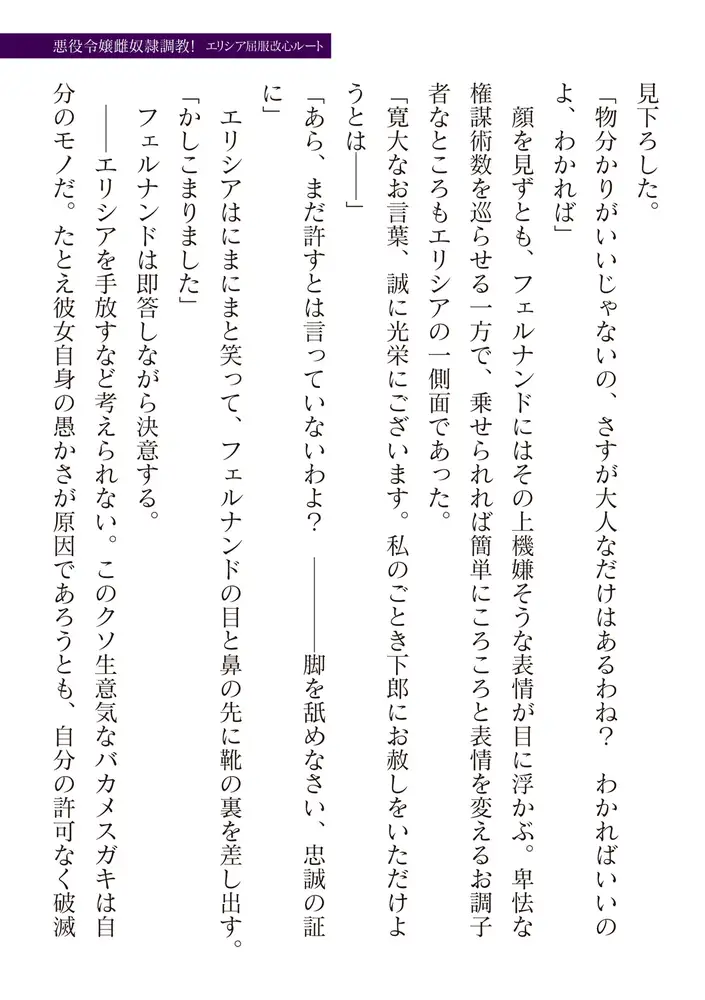 悪役令嬢雌奴隷調教! エリシア屈服改心ルート
見下ろした。
「物分かりがいいじゃないの、さすが大人なだけはあるわね? わかればいいの
よ、わかれば」
顔を見ずとも、フェルナンドにはその上機嫌そうな表情が目に浮かぶ。卑怯な
権謀術数を巡らせる一方で、乗せられれば簡単にころころと表情を変えるお調子
者なところもエリシアの一側面であった。
「寛大なお言葉、誠に光栄にございます。私のごとき下郎にお赦しをいただけよ
うとは――」
「あら、まだ許すとは言っていないわよ? ――――脚を舐めなさい、忠誠の証
に」
エリシアはにまにまと笑って、フェルナンドの目と鼻の先に靴の裏を差し出す。
「かしこまりました」
フェルナンドは即答しながら決意する。
――エリシアを手放すなど考えられない。このクソ生意気なバカメスガキは自
分のモノだ。たとえ彼女自身の愚かさが原因であろうとも、自分の許可なく破滅